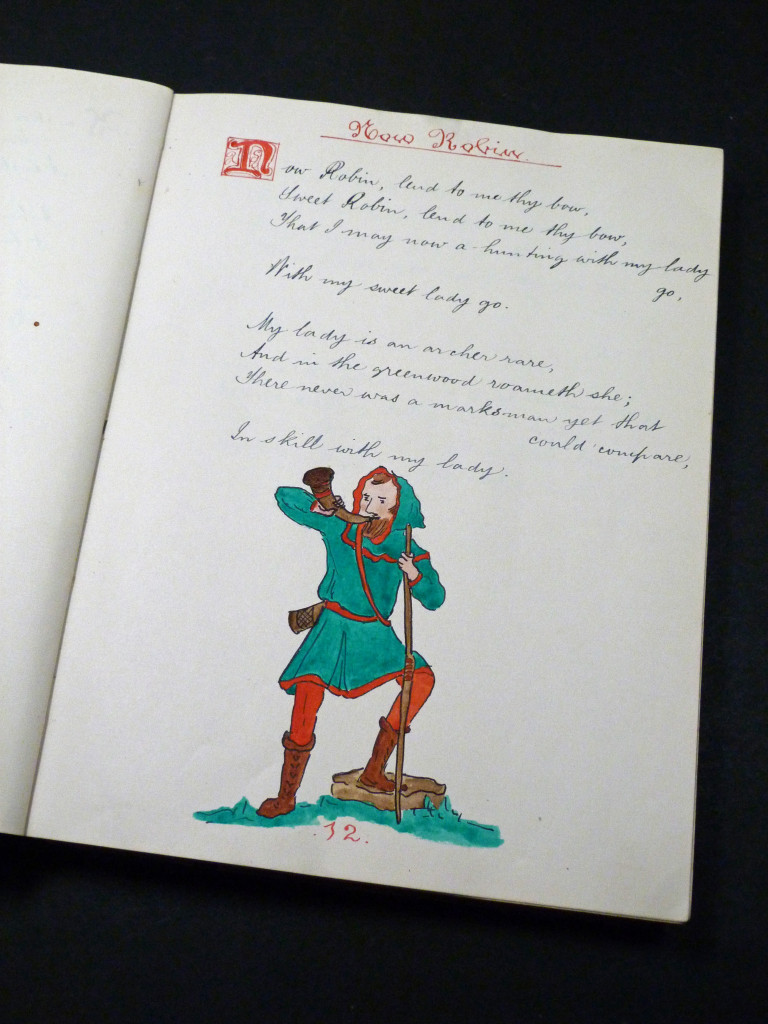 Now Robin.
Now Robin, lend to me thy bow,
Sweet Robin, lend to me thy bow,
That I may now a-hunting with my lady
go,
With my sweet lady go.
My lady is an archer rare,
And in the greenwood roameth she;
There never was a marksman yet that
could compare,
In skill with my lady.
.12.